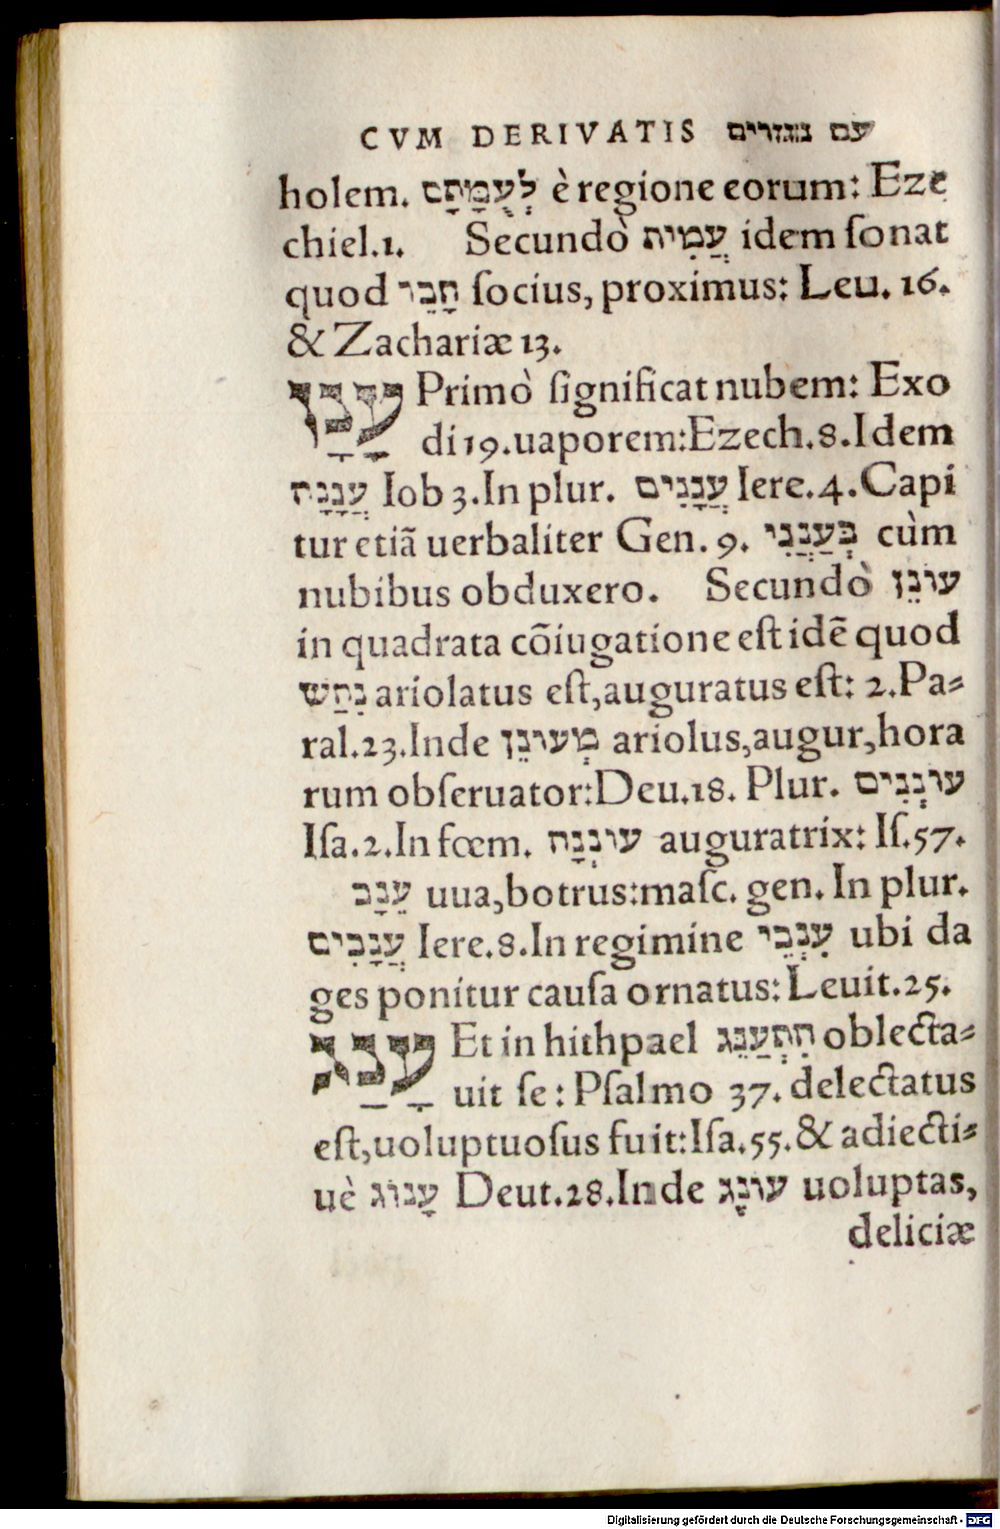 CVM DERIVATIS עם נגזרים
holem. לְעֻמָּתָם è regione eorum: Eze
chiel.1. Secundò עֲמִית idem ſonat
quod חָבֵר ſocius, proximus: Leu. 16.
& Zachariæ 13.
עָנַן Primò ſignificat nubem: Exo
di 19. uaporem: Ezech. 8. Idem
עֲנָנָה Iob 3. In plur. עֲנָנִים Iere. 4. Capi
tur etiã uerbaliter Gen. 9. בְּעַנֲנִי cùm
nubibus obduxero. Secundò עוֹנֵן
in quadrata cõiugatione eſt idẽ quod
נִחַשׁ ariolatus eſt, auguratus eſt: 2. Pa⸗
ral. 23. Inde מְעוֹנֵן ariolus, augur, hora
rum obſeruator: Deu. 18. Plur. עוֹנְנִים
Iſa. 2. In fœm. עוֹנְנָה auguratrix: Iſ. 57.
עֵנָב uua, botrus: maſc. gen. In plur.
עֲנָבִים Iere. 8. In regimine עִנְּבֵי ubi da
ges ponitur cauſa ornatus: Leuit. 25.
עָנַג Et in hithpael הִתְעַנֵּג oblecta⸗
uit ſe: Pſalmo 37. delectatus
eſt, uoluptuoſus fuit: Iſa. 55. & adiecti⸗
uè עָנוֹג Deut. 28. Inde עוֹנֶג uoluptas,
deliciæ
Digitalisierung gefördert durch die Deutsche Forschungsgemeinschaft - DFG